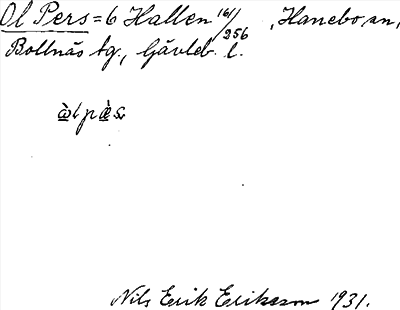 Ol Pers = 6 Hallen 16/256, Hanebo sn,
Bollnäs tg., Gävleb. l.
Nils Erik Eriksson 1931.